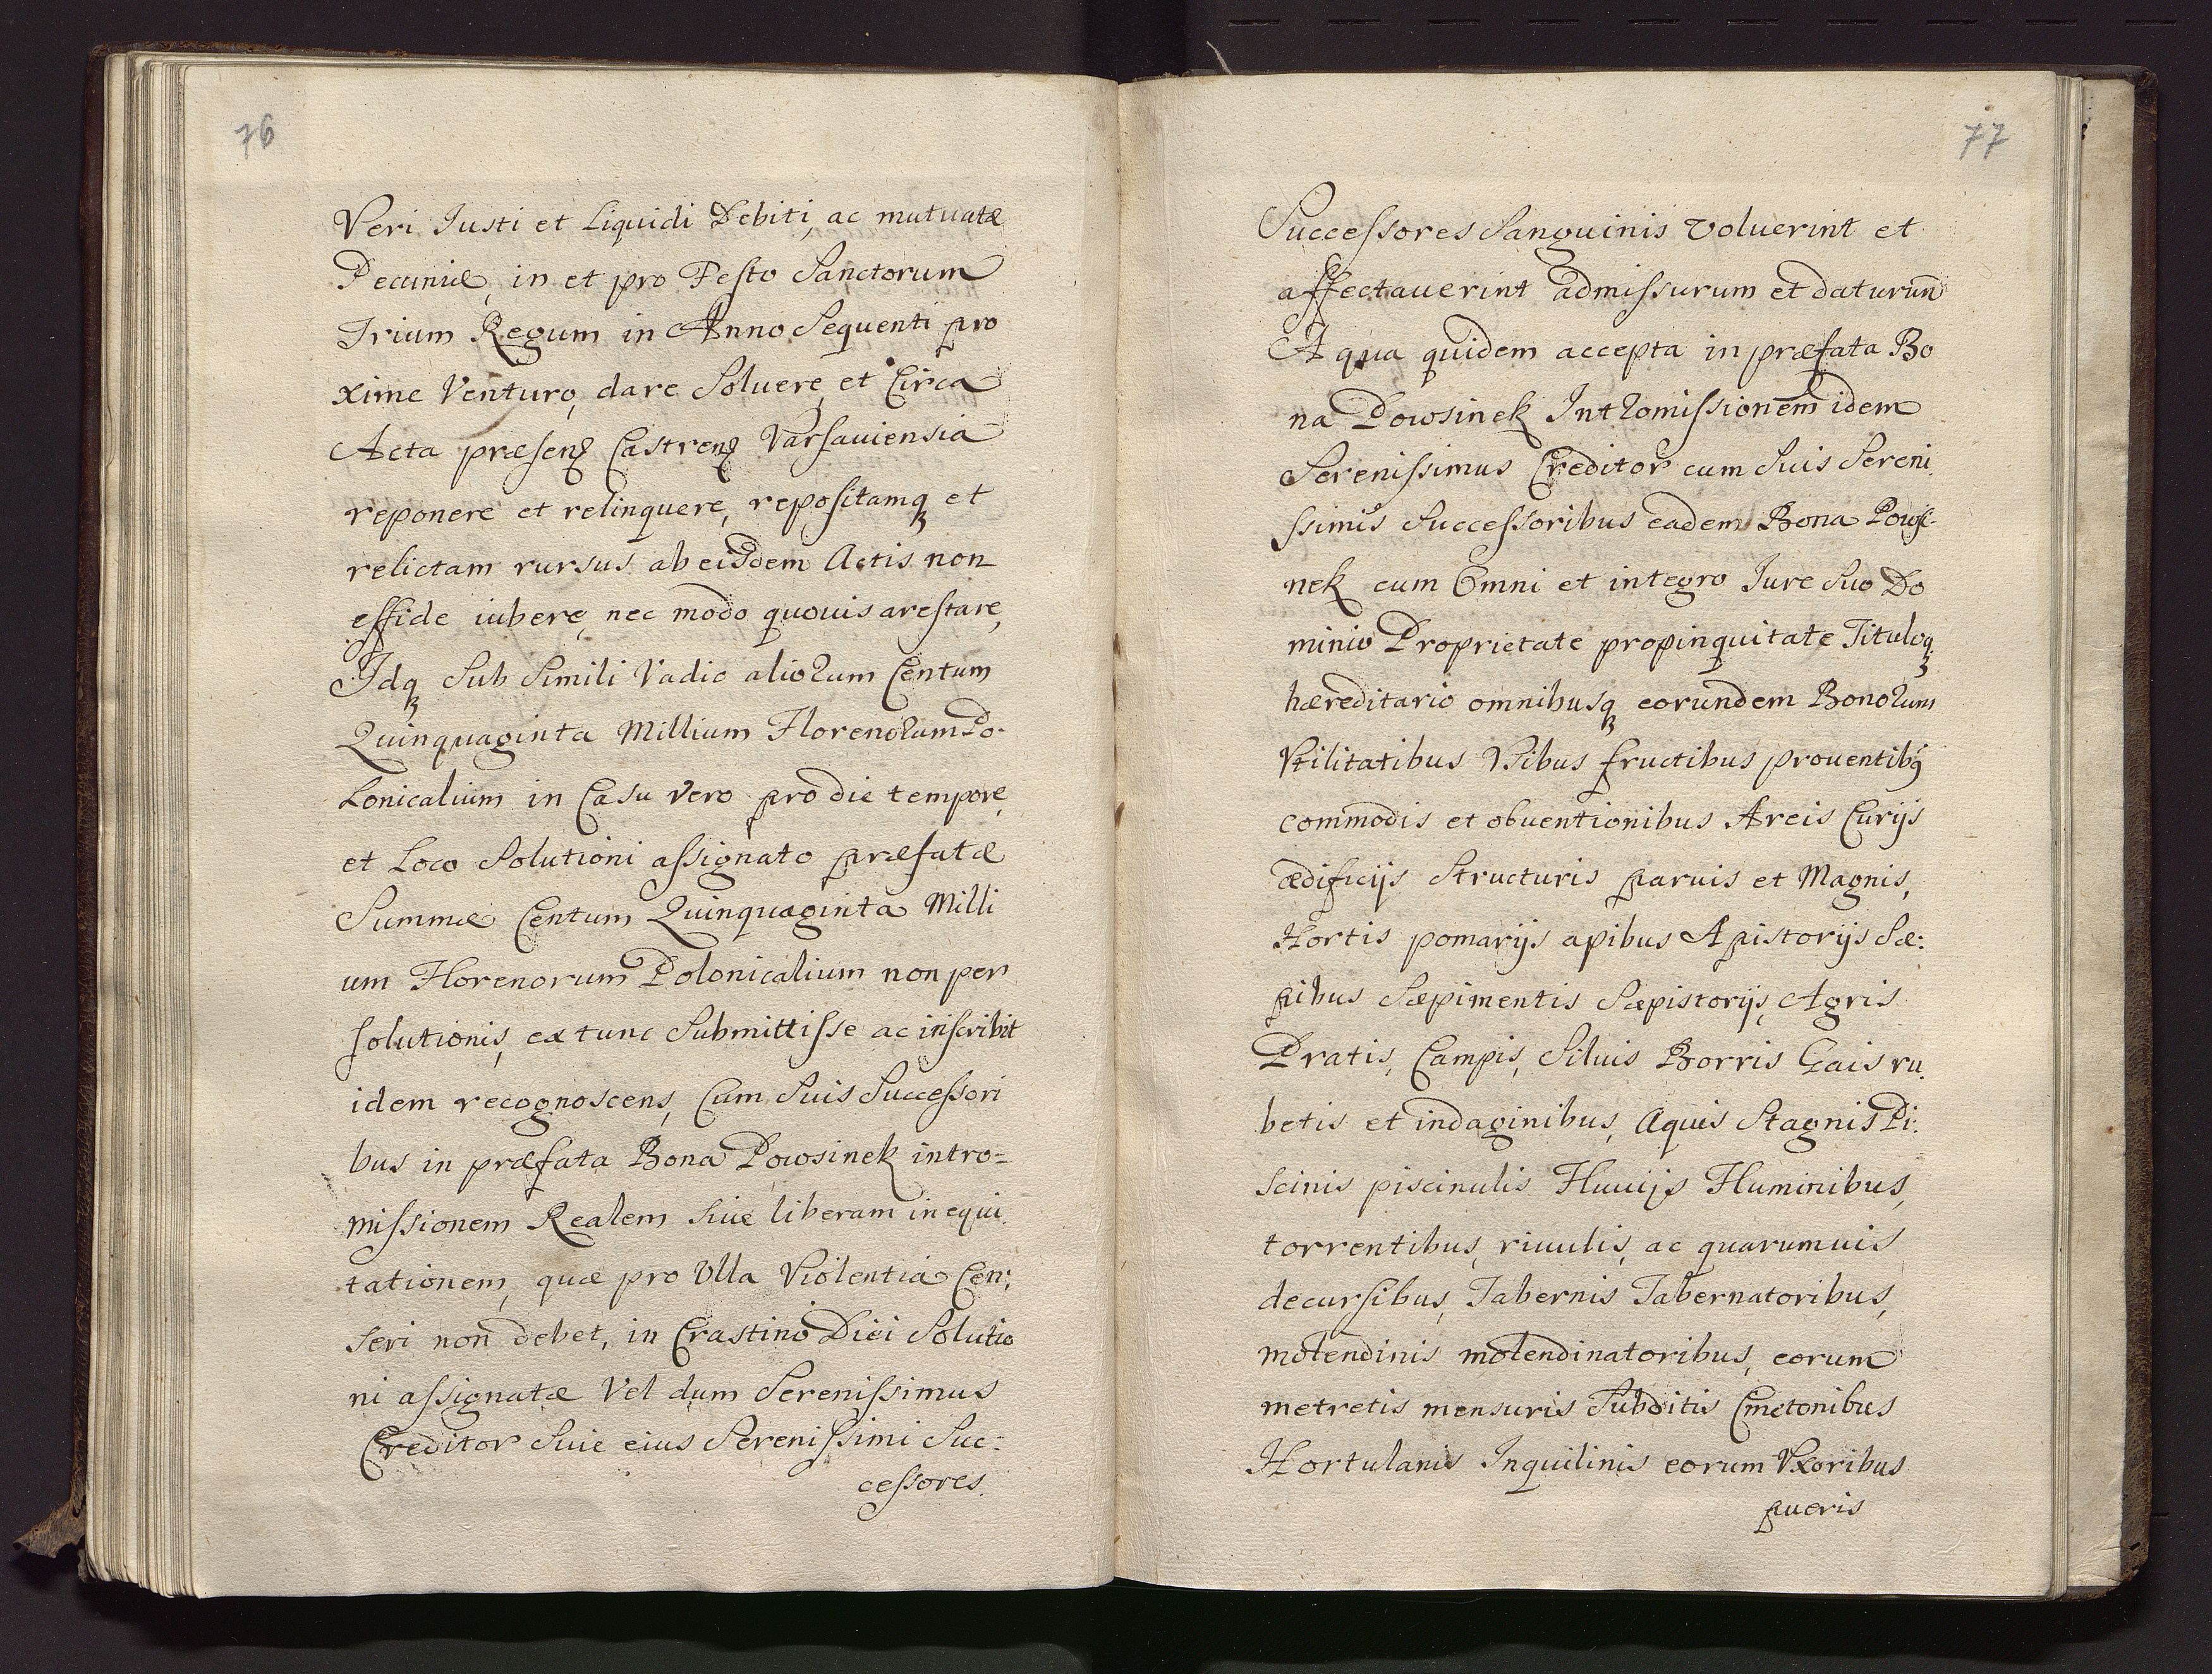 76
Veri Iusti et Liquidi Debiti, ac mutuatæ
Pecuniæ, in et pro Festo Sanctorum
Trium Regum in Anno Sequenti pro
xime Venturo, dare Soluere, et Circa
Acta præsenꝫ Castrenꝫ Varsauiensia
reponere et relinquere, repositamqꝫ et
relictam rursus ab eisdem Actis non
effide iubere, nec modo quouis arestare,
Idqꝫ Sub Simili Vadio aliorum Centum
Quinquaginta Millium Florenorum Po-
Lonicalium in Casu vero pro die tempore,
et Loco Solutioni assignato præfatæ
Summæ Centum Quinquaginta Milli
um Florenorum Polonicalium non per
solutionis, ex tunc Submittisse ac inscribit
idem recognoscens, Cum Suis Successori
bus in præfata Bona Powsinek intro=
missionem Realem Siue liberam inequi.
tationem, quæ pro Vlla Violentia Cen:
seri non debet, in Crastino Diei Solutio
ni assignatæ Vel dum Serenissimus
Creditor Siue eius Serenissimi Suc:
cessores.
77
Successores Sanguinis voluerint et
affectauerint admissurum et daturum
A qua quidem accepta in præfata Bo
na Powsinek Intromissionem idem
Serenissimus Creditor cum Suis Sereni.
ssimis Successoribus eadem Bona Powsi-
nek cum Omni et integro Iure Suo Do
minio Proprietate propinquitate Tituloqꝫ
hæreditario omnibusqꝫ eorundem Bonorum
Vtilitatibus Vsibus fructibus prouentibꝰ
commodis et obuentionibus Areis Curijs
ædificijs Structuris paruis et Magnis,
Hortis pomarijs apibus Apistorijs Sæ:
pibus Sæpimentis Sæpistorijs, Agris
Pratis, Campis, Siluis Borris Gais ru.
betis et indaginibus, Aquis Stagnis Pi:
scinis piscinulis Fluuijs Fluminibus,
torrentibus, riuulis, ac quarumuis
decursibus, Tabernis Tabernatoribus,
molendinis molendinatoribus, eorum
metretis mensuris Subditis Cmetonibus
Hortulanis Inquilinis eorum Vxoribus
pueris